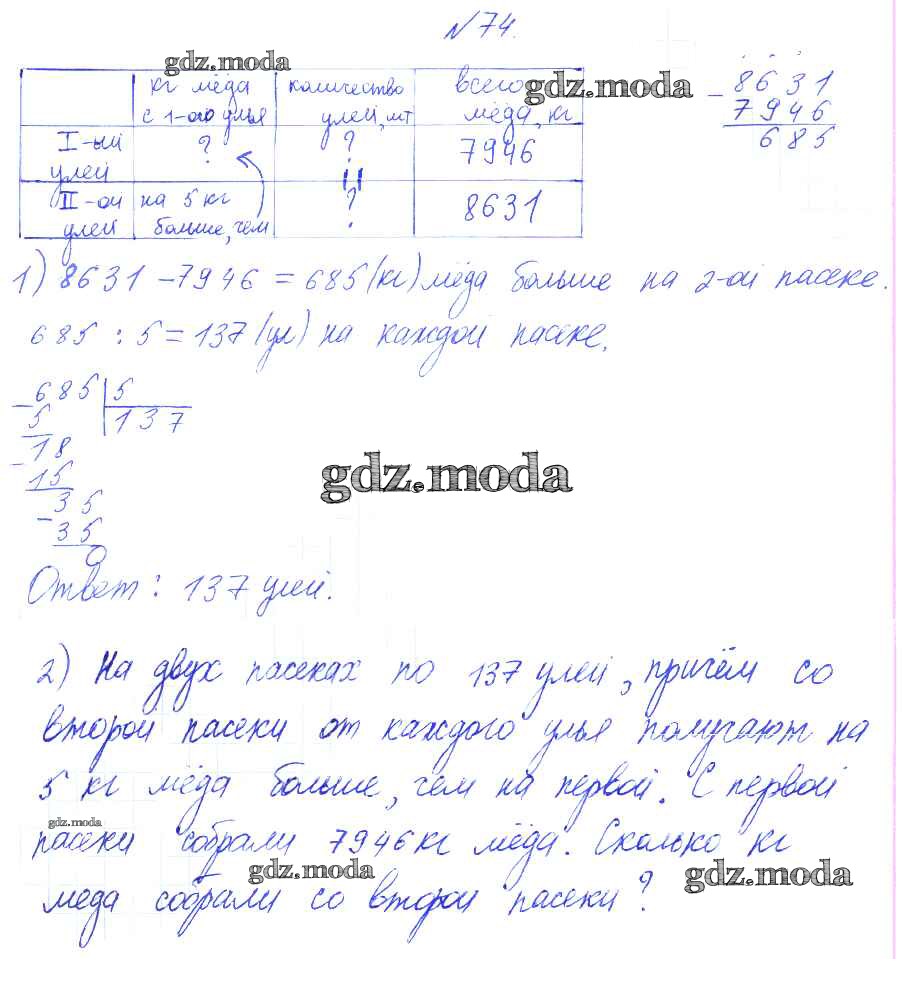 №74.
gdz.moda
кг мёда количество всего
с 1-ого улья улей, шт мёда, кг
gdz.moda
I-ый ? ? 7946
улей
II-ой на 5 кг ? 8631
улей больше, чем
- 8631
7946
685
1) 8631 - 7946 = 685 (кг) мёда больше на 2-ой пасеке.
685 : 5 = 137 (ул) на каждой пасеке.
- 685 5
5 137
- 18
15
- 35
35
0
gdz.moda
Ответ: 137 улей.
2) На двух пасеках по 137 улей, причём со
второй пасеки от каждого улья получают на
5 кг мёда больше, чем на первой. С первой
gdz.moda
пасеки собрали 7946 кг мёда. Сколько кг
gdz.moda
gdz.moda
меда собрали со второй пасеки?